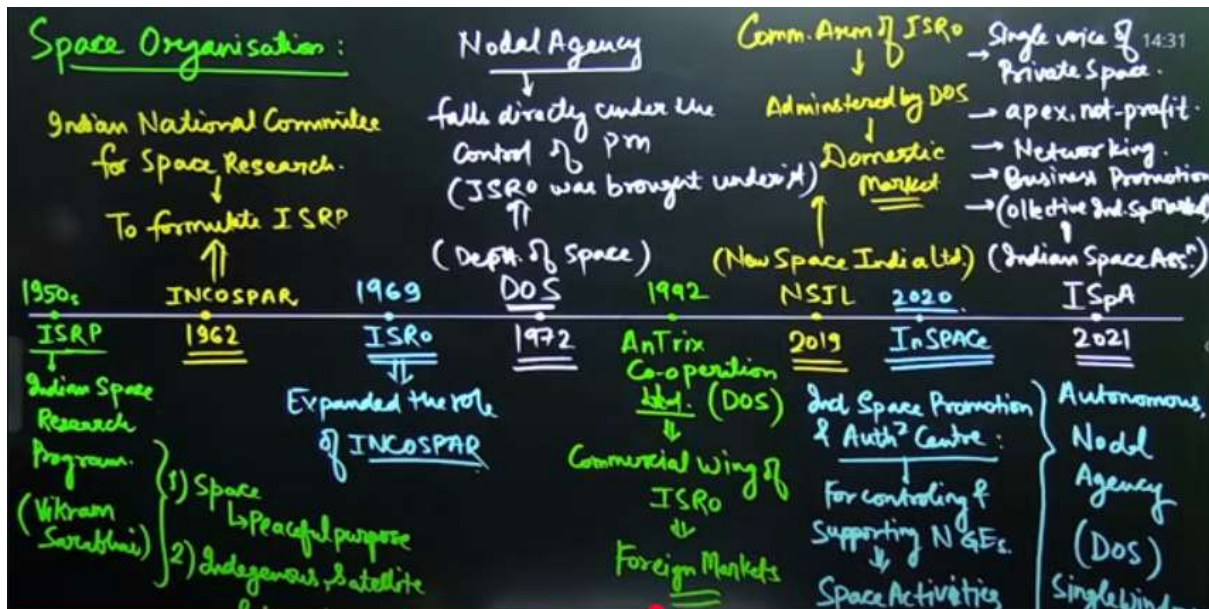 Space Organisation:
Indian National Commitee
for Space Research.
To formulate ISRP
Nodal Agency
falls directly under the
Control of PM
(ISRO was brought under it)
(Deptt. of Space)
Comm. Arem of ISRO
Adminstered by DOS
Domestic
Market
(New Space India Ltd.)
→ Single voice of
Private Space.
→ apex, not-profit.
→ Networking.
→ Business Promotion
→ Collective Ind. Sp
(Indian Space Assn)
14:31
1950s INCOSPAR 1969 DOS 1992 NSIL 2020 ISpA
ISRP 1962 ISRO 1972 AnTrix 2019 InSPACe 2021
Indian Space
Research
Program.
(Vikram
Sarabhai)
1) Space
↳ Peaceful purpose
2) Indegenous, Satellite
Expanded the role
of INCOSPAR
Co-operition
Ltd. (DOS)
Commercial Wing of
ISRO
Foreign Markets
Ind Space Promotion
& Authn Centre:
For controling &
Supporting NGEs.
Space Activities
Autonomous,
Nodal
Agency
(DOS)